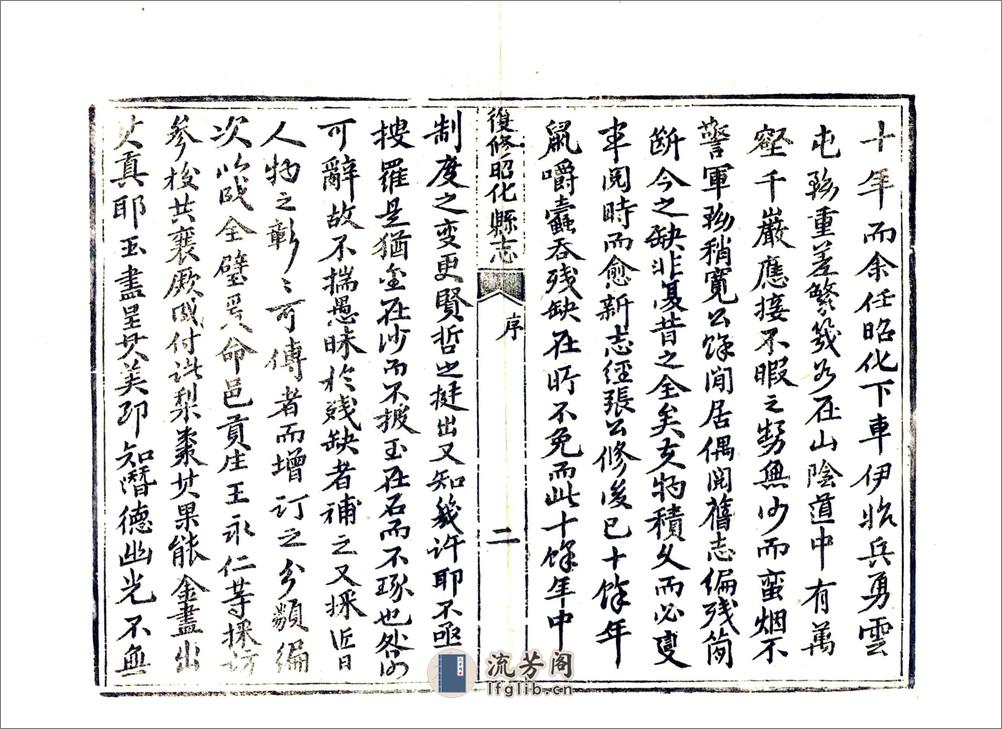 十年而余任昭化下車伊始兵勇雲
屯務重差繁幾如在山陰道中有萬
壑千巖應接不暇之勢無何而蛮烟不
警軍務稍寬公餘閒居偶閱舊志編残簡
断今之缺非复昔之全矣夫物積久而必變
事閱時而愈新志經張公修後已十餘年
鼠嚼蠹吞残缺在所不免而此十餘年中
復修昭化縣志
序
二
制度之变更賢哲之挺出又知幾許耶不亟
搜羅是猶金在沙而不披玉在石而不琢也
可辭故不揣愚昧於殘缺者補之又採近日
人物之彰〻可傳者而增订之分類編
次以成全璧爰命邑貢生王永仁等採訪
參校共襄厥成付諸梨棗其果能金盡出
其真耶玉盡呈其美耶知潛德幽光不無
流芳阁
lfglib.cn